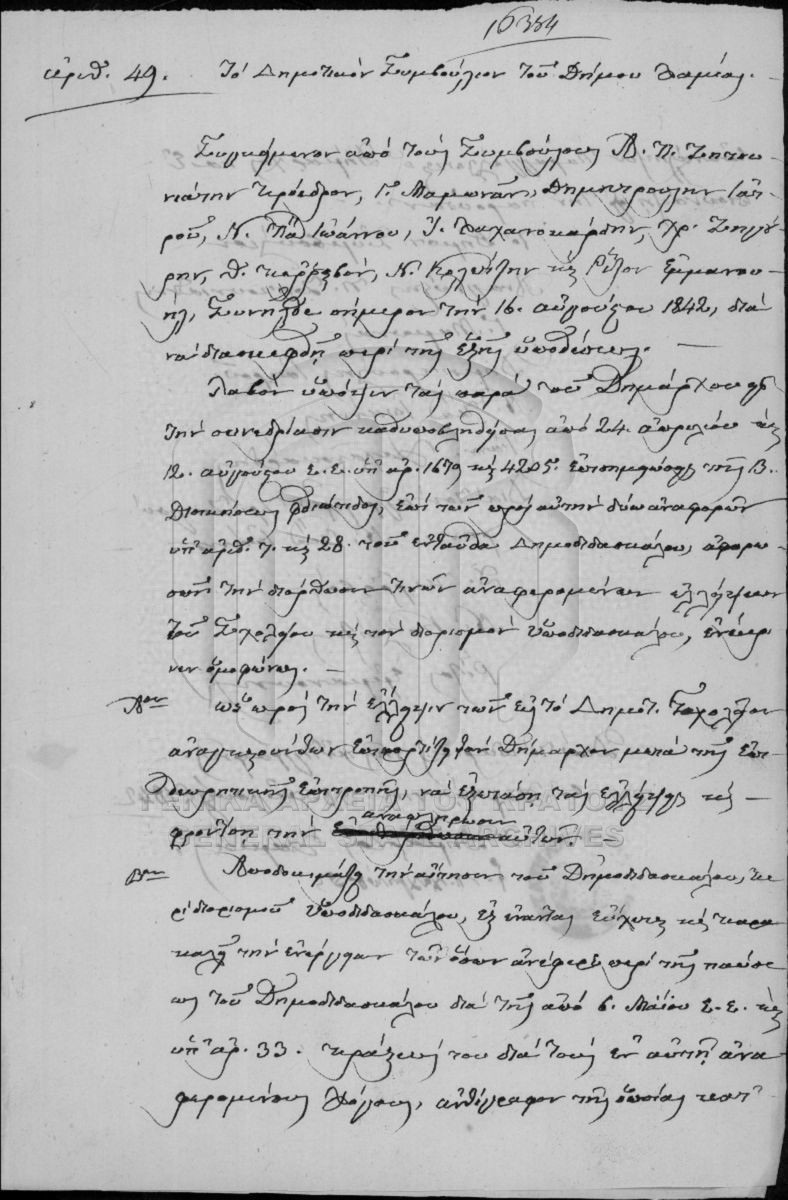 16384
ἀριθ. 49. Τὸ Δημοτικὸν Συμβούλιον τοῦ Δήμου Λαμίας.
Συγκείμενον ἀπὸ τοὺς Συμβούλους Α. Π.
Πρόεδρον, Γ. Δημητρούλην Ἰατ-
ροῦ, Ν. Πᾶ Ἰωάννου, Ἰ. Λαχανοκάρδην, Χρ.
ρην, Ν. καὶ Ρίζον Ἐμμανου-
ήλ, Συνῆλθε σήμερον τὴν 16. αὐγούστου 1842, διὰ
νὰ διασκεφθῇ περὶ τῆς ἑξῆς ὑποθέσεως.
Λαβὸν ὑπόψιν τὰς παρὰ τοῦ Δημάρχου εἰς
τὴν συνεδρίασιν καθυποβληθείσας ἀπὸ 24. ἀπριλίου καὶ
12. αὐγούστου ἔ. ἔ. ὑπ' ἀρ. 1679 καὶ 4205. ἐπισημειώσεις τῆς Β.
Διοικήσεως Φθιώτιδος, ἐπὶ τῶν πρὸς αὐτὴν δύω ἀναφορῶν
ὑπ' ἀριθ. 7. καὶ 28. τοῦ ἐνταῦθα Δημοδιδασκάλου, ἀφορω-
σῶν τὴν διόρθωσιν τινῶν ἀναφερομένων ἐλλείψεων
τοῦ Σχολείου καὶ τὸν διορισμὸν ὑποδιδασκάλου, ἐνέκρι-
νεν ὁμοφώνως.
Αον ὡς πρὸς τὴν ἔλλειψιν τῶν εἰς τὸ Δημοτ. Σχολεῖον
ἀναγκαιούντων ἐπιφορτίζει τὸν Δήμαρχον μετὰ τῆς ἐπι-
θεωρητικῆς ἐπιτροπῆς, νὰ ἐξετάσῃ τὰς ἐλλείψεις καὶ
φροντίσῃ τὴν ἀναπλήρωσιν αὐτῶν.
Βον Ἀποδοκιμάζει τὴν αἴτησιν τοῦ Δημοδιδασκάλου, πε-
ρὶ διορισμοῦ ὑποδιδασκάλου, ἐξ ἐναντίας εὔχεται καὶ παρα-
καλεῖ τὴν ἐνέργειαν τῶν ὅσων ἀνέφερε περὶ τῆς παύσε-
ως τοῦ Δημοδιδασκάλου διὰ τῆς ἀπὸ 6. Μαΐου ἔ. ἔ. καὶ
ὑπ' ἀρ. 33. πράξεώς του διὰ τοὺς ἐν αὐτῇ ἀνα-
φερομένους λόγους, ἀντίγραφον τῆς ὁποίας
ΓΕΝΙΚΑ ΑΡΧΕΙΑ ΤΟΥ ΚΡΑΤΟΥΣ
HELLENIC STATE ARCHIVES